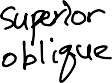 superior
oblique